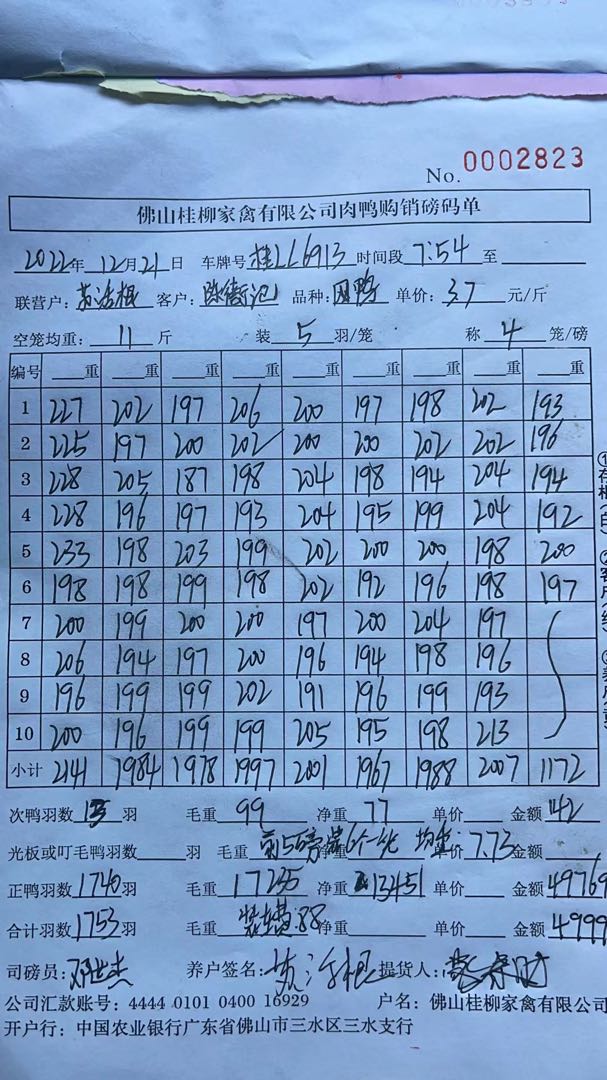 No. 0002823
佛山桂柳家禽有限公司肉鸭购销磅码单
2022年 12月21日 车牌号 桂LL6913 时间段 7:54 至
联营户: 客户: 品种: 单价: 3.7 元/斤
空笼均重: 11 斤 装 5 羽/笼 称 4 笼/磅
编号 重 重 重 重 重 重 重 重 重
1 227 202 197 206 200 197 198 202 193
2 225 197 200 202 200 200 202 202 196
3 228 205 187 198 204 198 194 204 194
4 228 196 197 193 204 195 199 204 192
5 233 198 203 199 202 200 200 198 200
6 198 198 199 198 202 192 196 198 197
7 200 199 200 200 197 200 204 197
8 206 194 197 200 196 194 198 196
9 196 199 199 202 191 196 199 193
10 200 196 199 199 205 195 198 213
小计 2141 1984 1978 1997 2001 1967 1988 2007 1172
次鸭羽数 13 羽 毛重 99 净重 77 单价 金额 142
光板或叮毛鸭羽数 羽 毛重 净重 7.73 金额
正鸭羽数 1740 羽 毛重 17235 净重 13451 单价 金额 49769
合计羽数 1753 羽 毛重 88 净重 金额 4999
司磅员: 养户签名: 提货人:
公司汇款账号: 4444 0101 0400 16929 户名: 佛山桂柳家禽有限公司
开户行: 中国农业银行广东省佛山市三水区三水支行